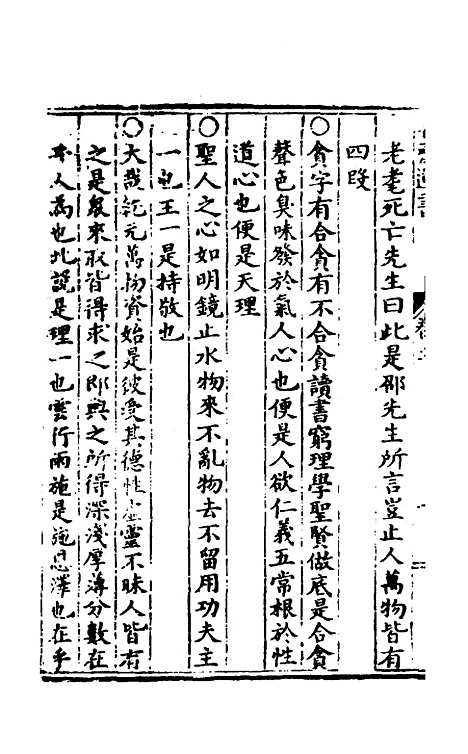 老耄死亡先生曰此是邵先生所言豈止人萬物皆有
四段
○貪字有合貪有不合貪讀書窮理學聖賢做底是合貪
聲色臭味發於氣人心也便是人欲仁義五常根於性
道心也便是天理
○聖人之心如明鏡止水物來不亂物去不留用功夫主
一也主一是持敬也
○大哉乾元萬物資始是彼受其德性虛靈不昧人皆有
之是眾來取皆得求之即與之所得深淺厚薄分數在
乎人為也此說是理一也雲行雨施是施恩澤也在乎